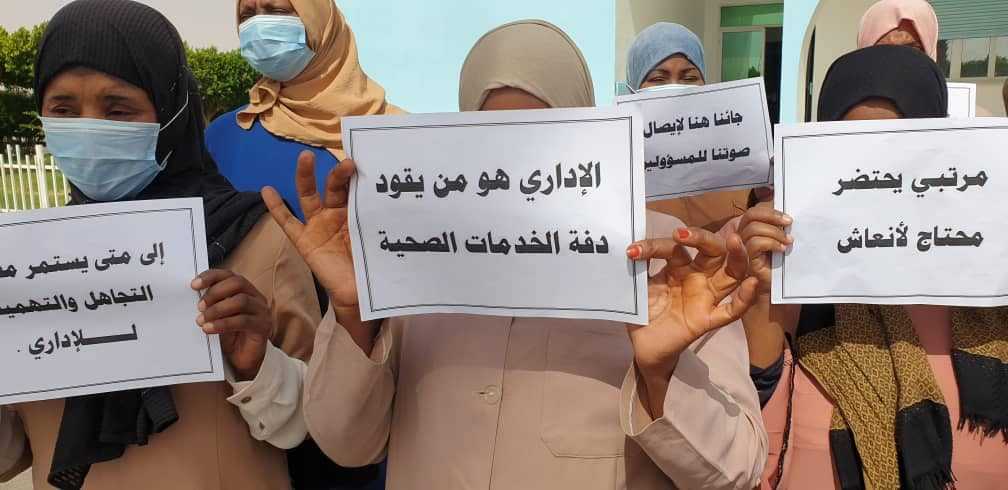 مرتبي يحتضر
محتاج لأنعاش
جائنا هنا لإيصال
صوتنا للمسؤولين
الإداري هو من يقود
دفة الخدمات الصحية
إلى متى يستمر
التجاهل والتهميش
لـــلإداري .